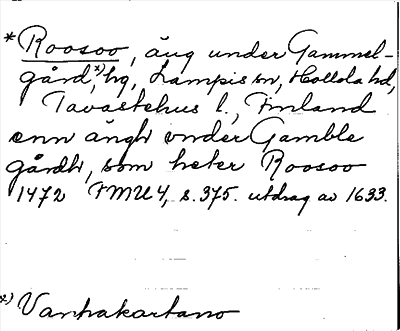 * Roosoo, äng under Gammel-
gård,ˣ⁾ hg, Lampis sn, Hollola hd,
Tavastehus l., Finland
enn ängh vnder Gamble
gårdh, som heter Roosoo
1472 FMU 4, s. 375. utdrag av 1633.
x) Vanhakartano